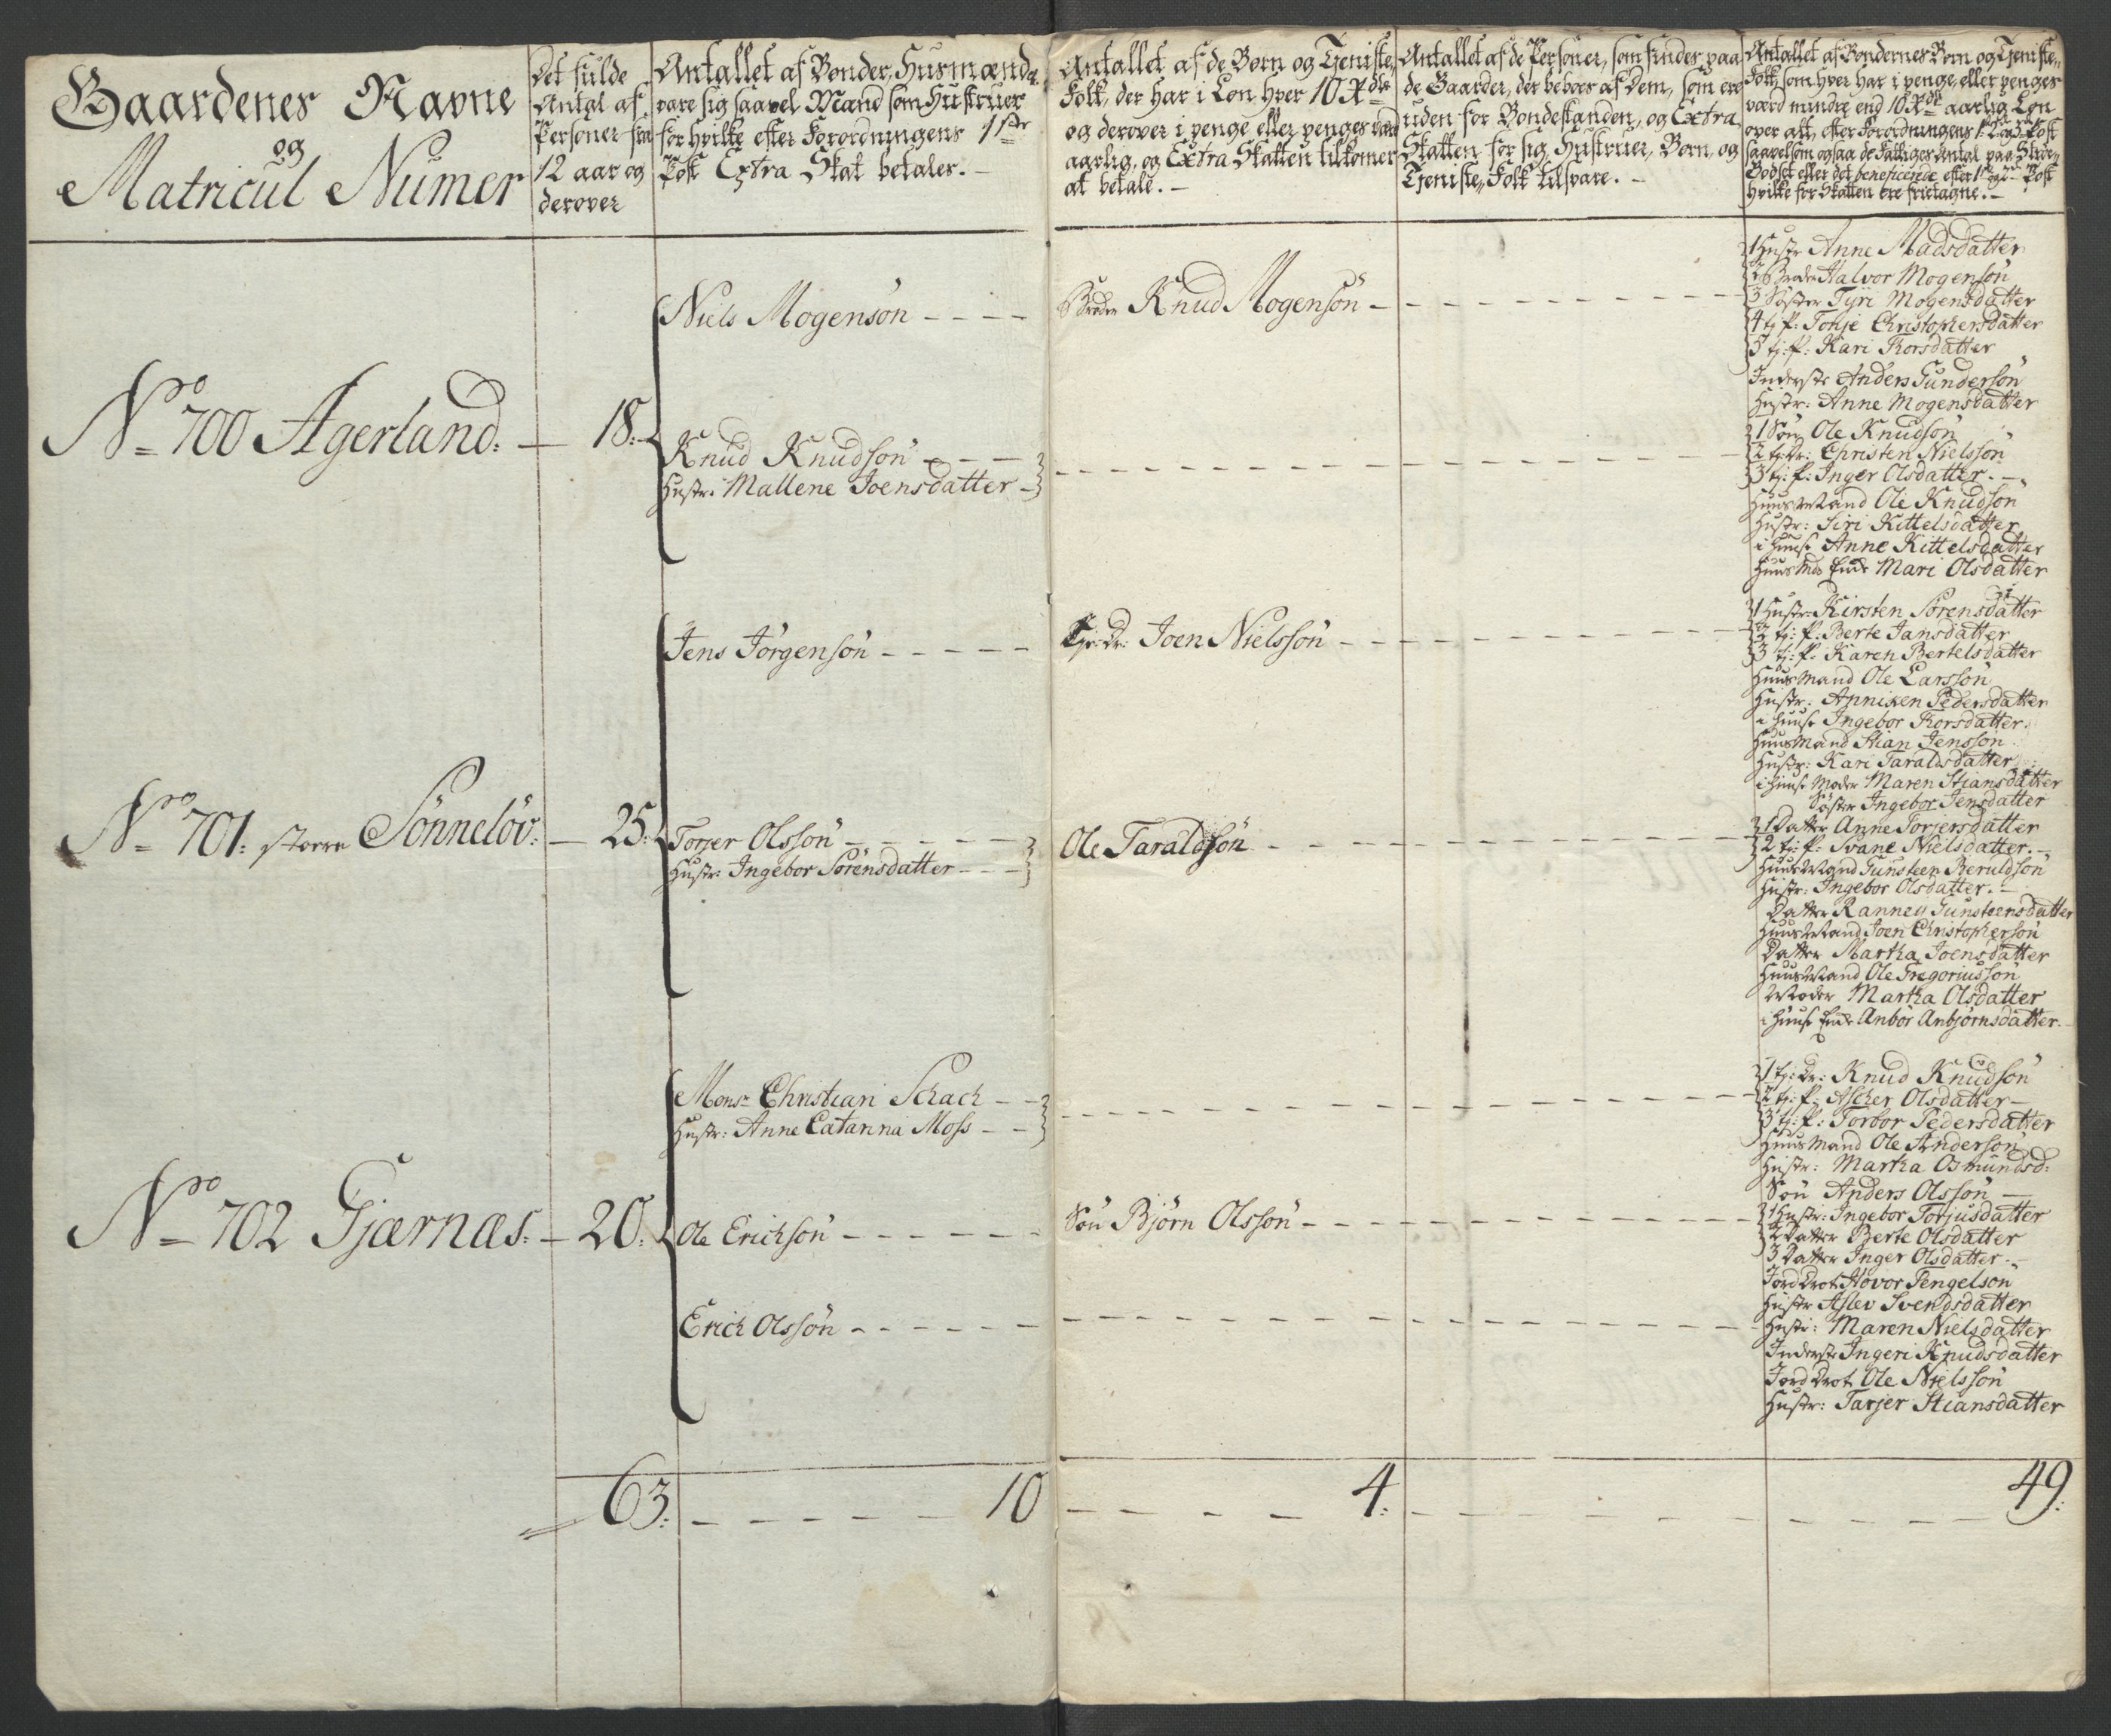 Gaardenes Navne
og
Matricul Numer
Det fulde
Antal af
Personer fra
12 aar og
derover
Antallet af Bønder, Husmænd
være sig saavel Mænd som Hustruer
for hvilke efter Forordningens 1ste
Post Extra Skat betales. -
Antallet af de Børn og Tieniste,,
Folk, der har i Løn hver 10 Rdlr
og derover i penge eller penges værd
aarlig, og Extra Skatten tilkomer
at betale. -
Antallet af de Personer, som finder paa
de Gaarder, der beboes af Dem, som ere
uden for Bondestanden, og Extra
Skatten for sig, Hustruer, Børn, og
Tieniste,, Folk tilsvare. -
Antallet af Bøndernes Børn og Tieniste,,
Folk, som hver har i penge, eller penges
værd mindre end 10 Rdlr aarlig Løn
over alt, efter Forordningens Post
saavelsom ogsaa de Fattiges Antal paa
Godset eller det beneficerede efter Post
hvilke for Skatten ere frietagne. -
No 700 Agerland: - 18:
Niels Mogensøn - - - -
Broder Knud Mogensøn - - - -
1 Hustr Anne Madsdatter
2 Broder Halvor Mogensøn
3 Søster Tyri Mogensdatter
4 tj: P: Tonje Christophersdatter
5 tj: P: Kari Torsdatter
Inderste Anders Gundersøn
Hustr: Anne Mogensdatter
Knud Knudsøn - - - -
Hustr: Mallene Joensdatter -
1 Søn Ole Knudsøn
2 tj: Dr: Christen Nielssøn
3 tj: P: Inger Olsdatter. -
Huus Mand Ole Knudsøn
Hustr: Siri Kittelsdatter
i Huuse Anne Kittelsdatter
Huus Mds Enke Mari Olsdatter
No 701: større Sønneløv: - 25:
Jens Jørgensøn - - - - -
Tje: Dr: Joen Nielssøn - - - -
1 Hustr: Kirsten Sørensdatter
2 tj: P: Berte Jansdatter
3 tj: P: Karen Bertelsdatter
Huus Mand Ole Larssøn
Hustr: Anniken Pedersdatter
i Huuse Ingebor Torsdatter.
Huus Mand Stian Jenssøn
Hustr: Kari Taraldsdatter
i Huuse Moder Maren Stiansdatter
Søster Ingebor Jensdatter
Torjer Olssøn - - - - -
Hustr: Ingebor Sørensdatter - - -
Ole Taraldsøn - - - -
1 Datter Anne Torjersdatter
2 tj: P: Svane Nielsdatter. -
Huus Mand Gunsteen Beruldsøn
Hustr: Ingebor Olsdatter. -
Datter Ranney Gunsteensdatter
Huus Mand Joen Christophersøn
Datter Martha Joensdatter
Huus Mand Ole Gregoriussøn
Moder Martha Olsdatter
i Huuse Enke Anbor Anbjørnsdatter.
No 702 Gjærnæs: - 20:
Monsr Christian Schach - -
Hustr: Anne Catarina Moss - -
1 tj: Dr: Knud Knudsøn
2 tj: P: Ascher Olsdatter -
3 tj: P: Torbor Pedersdatter
Huus Mand Ole Andersøn
Hustr: Martha Osmundsd:
Søn Anders Olssøn -
Ole Erichsøn - - - - - -
Søn Bjørn Olssøn - - - -
1 Hustr: Ingebor Torjusdatter
2 Datter Berte Olsdatter
3 Datter Inger Olsdatter. -
Jord Drot Hovor Tengelson
Hustr Aslev Svendsdatter
Erich Olssøn - - - - - -
Hustr: Maren Nielsdatter
Inderste Ingeri Knudsdatter
Jord Drot Ole Nielssøn
Hustr: Tarjer Stiansdatter
63: - - - - - 10 - - - - 4: - - - - 49: